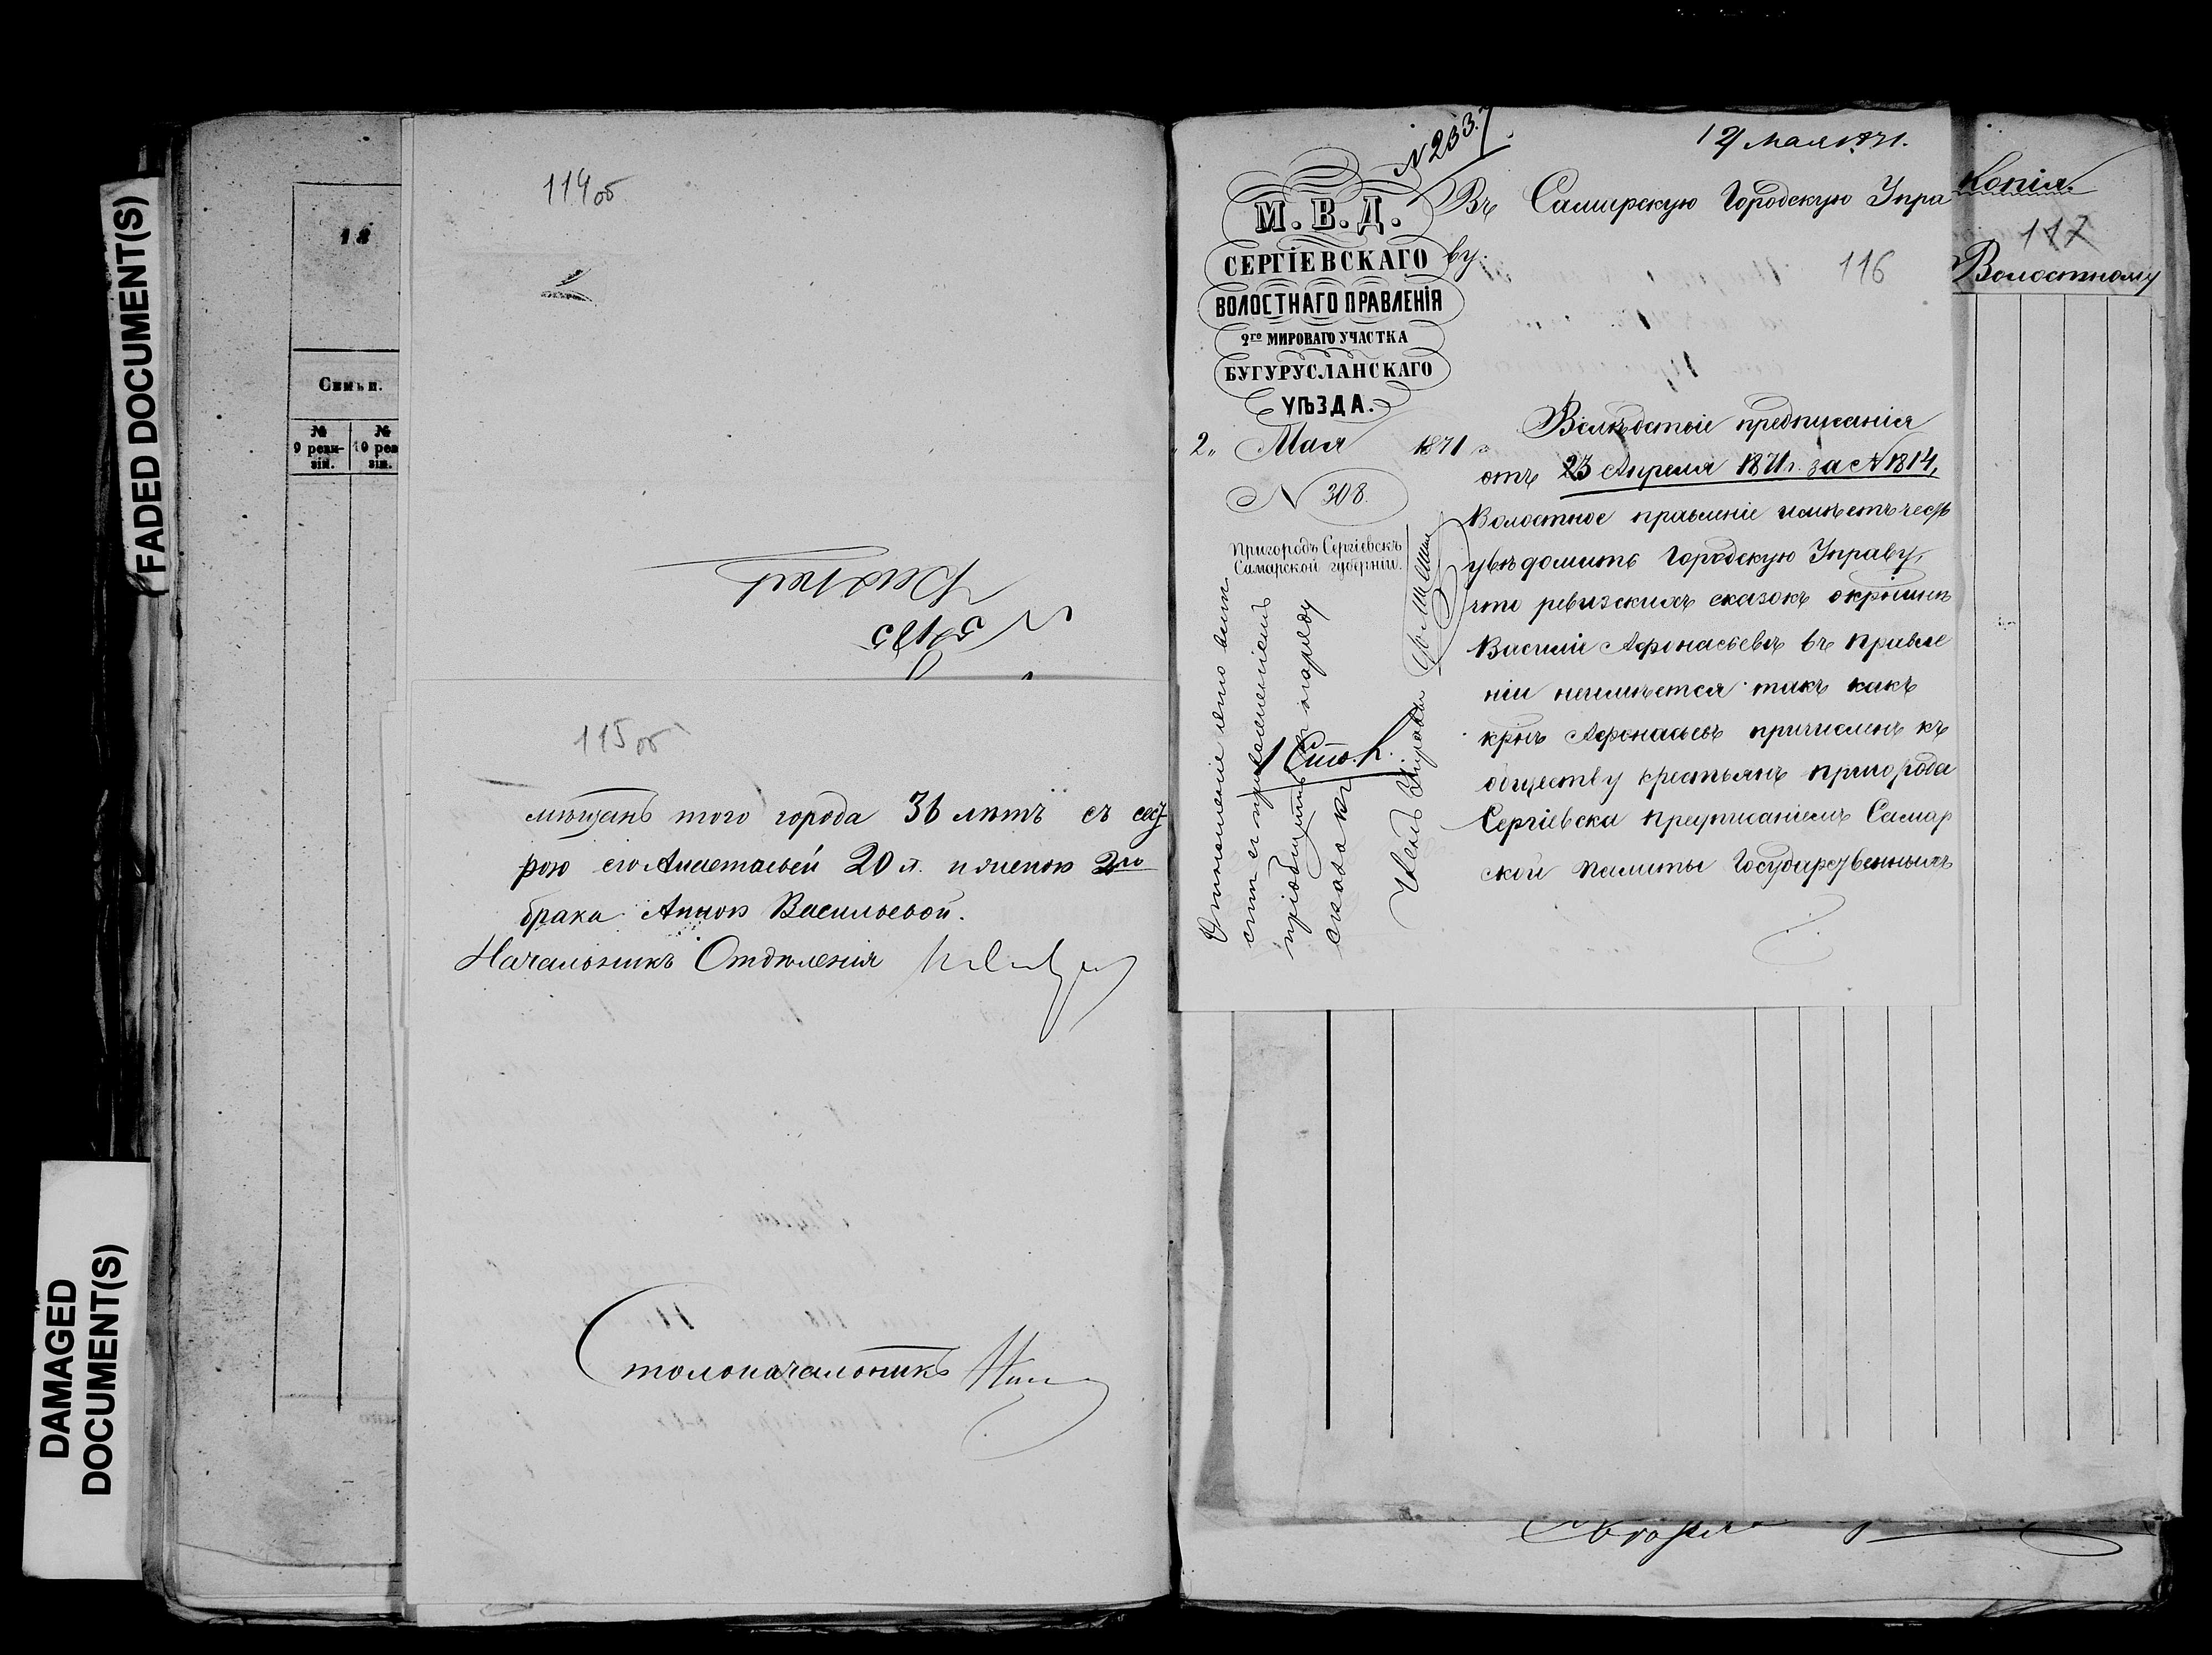 FADED DOCUMENT(S)
DAMAGED
DOCUMENT(S)
18
Семьи.
№ 9 реви-зіи.
№ 10 рев зіи.
114об
115об
мѣщанъ того города 36 лѣтъ съ сест
рою его Анастасьей 20 л. и женою 2го
брака Анною Васильевой.
Начальникъ Отдѣленія
Столоначальникъ
№ 2337
12 Мая 1871.
М. В. Д.
СЕРГІЕВСКАГО
ВОЛОСТНАГО ПРАВЛЕНІЯ
2го МИРОВАГО УЧАСТКА
БУГУРУСЛАНСКАГО
УѢЗДА.
"2" Мая 1871
№ 308.
Пригородъ Сергіевскъ
Самарской губерніи.
Въ Самарскую Городскую Упра
ву.
116
Вслѣдствіе предписанія
отъ 23 Апреля 1871 г. за № 1814,
Волостное правленіе имѣетъ честь
увѣдомить Городскую Управу,
что ревизскихъ сказокъ окрѣпине
Василіи Афонасьевѣ въ правле
ніи неимѣется такъ какъ
крнъ Афонасьевъ причисленъ къ
обществу крестьянъ пригорода
Сергіевска предписаніемъ Самар
ской палаты Государственныхъ
1 Сто.
пріобщить къ наряду
сказокъ
Членъ Управы
Копія.
117
Волостному